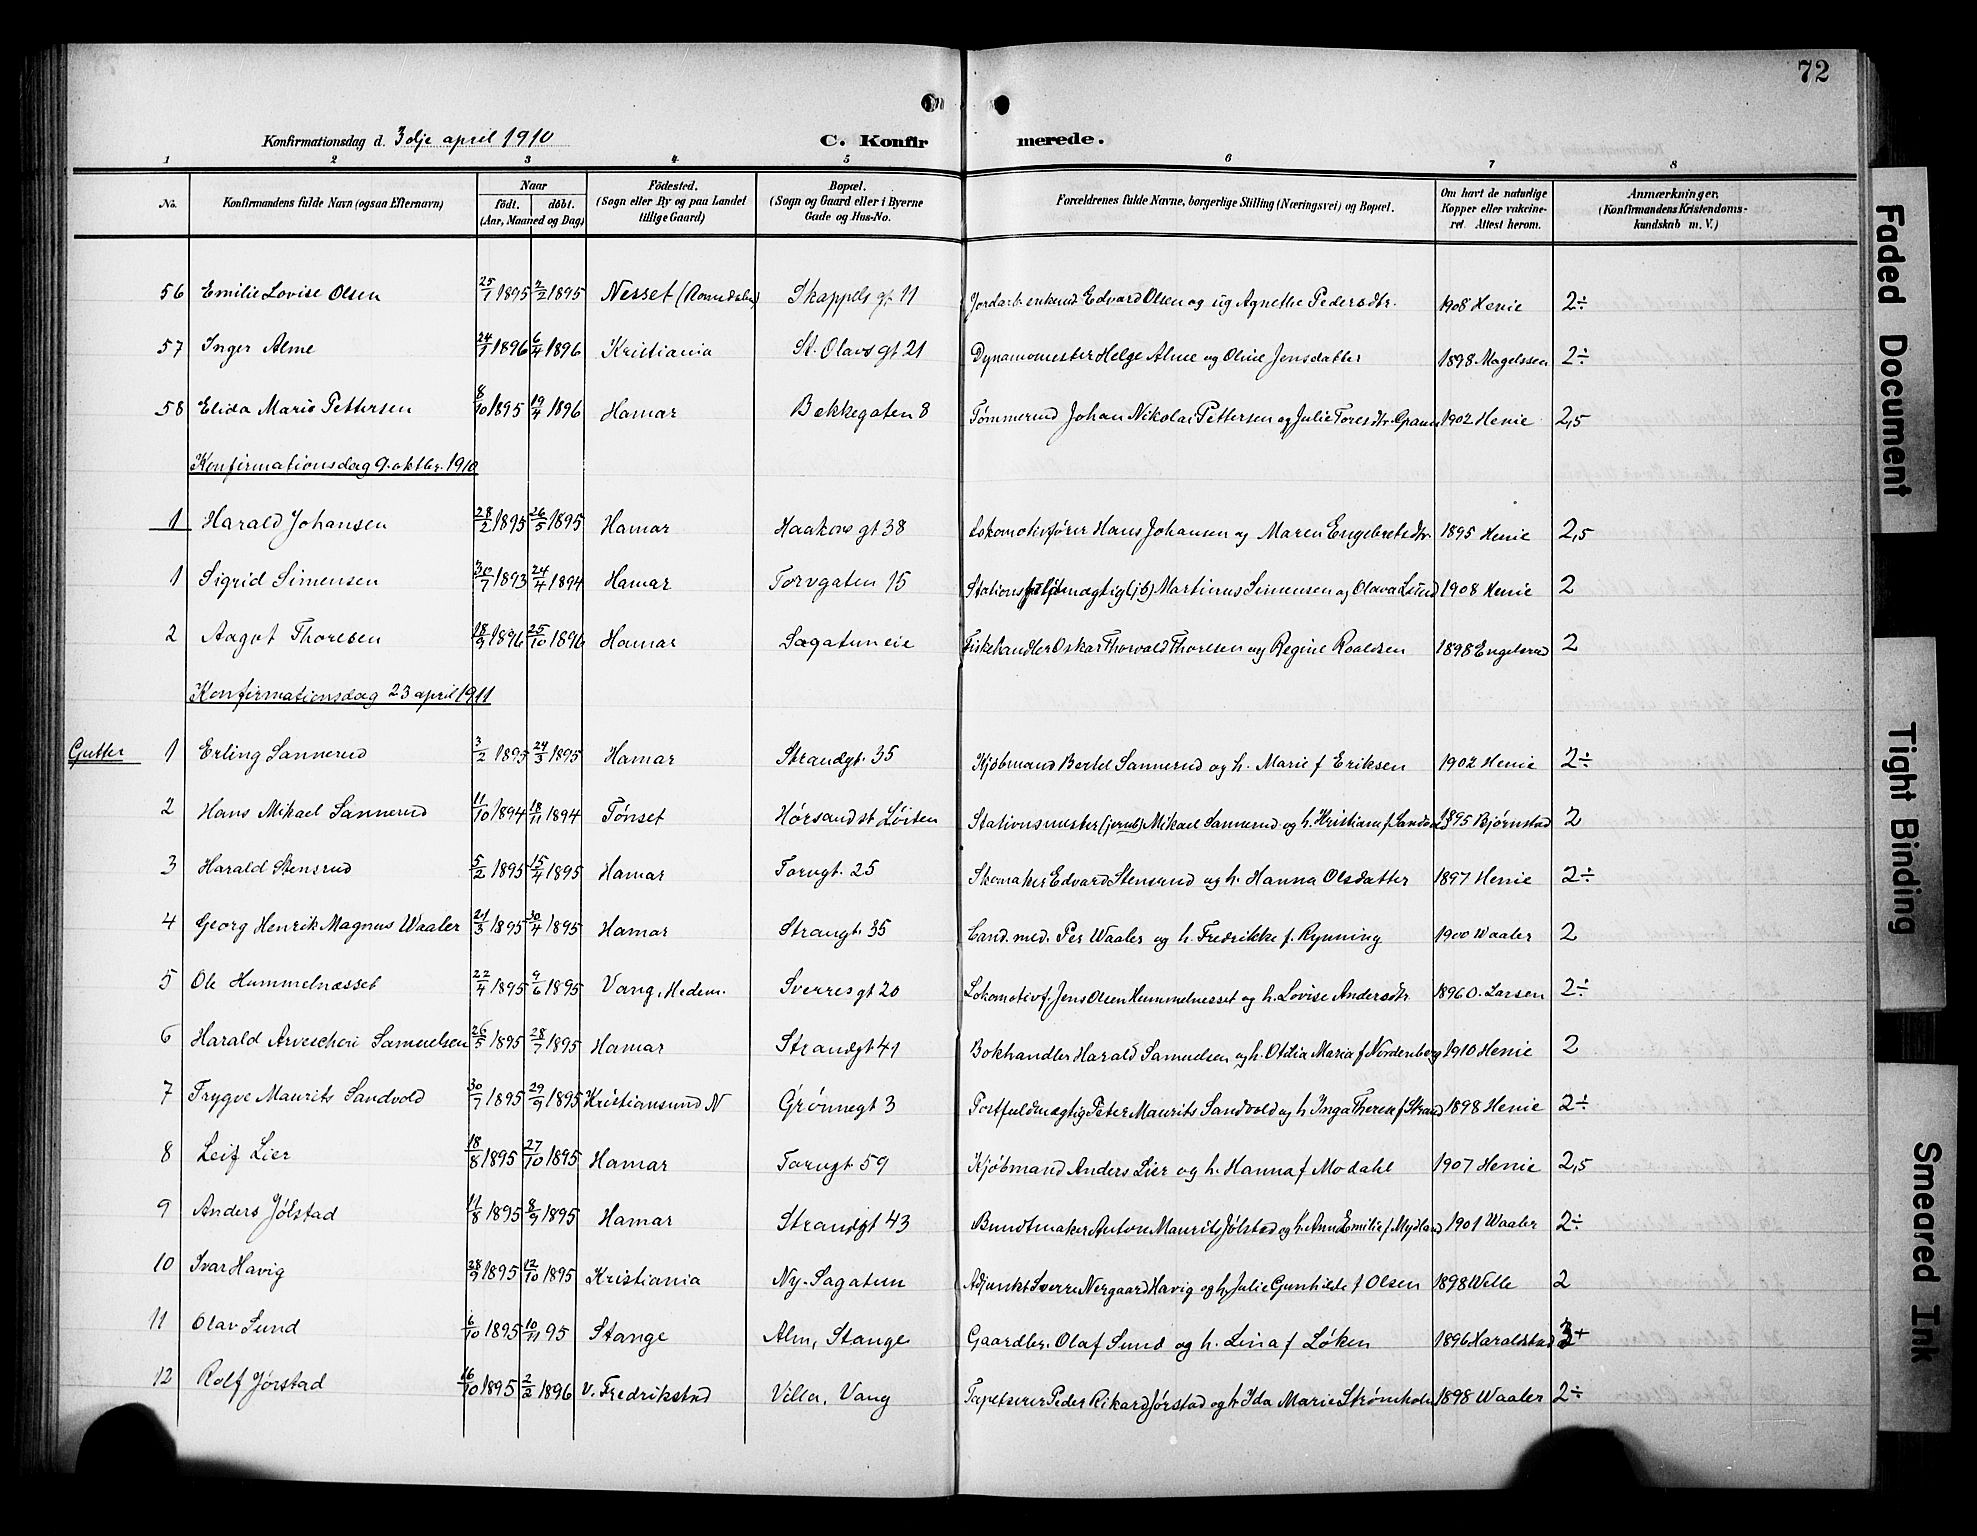 72
Konfirmationsdag d. 3dje april 1910 C. Konfirmerede.
1 2 3 4 5 6 7 8
No. Konfirmandens fulde Navn (ogsaa Efternavn) Naar født. døbt. (Aar, Maaned og Dag) Fødested. (Sogn eller By og paa Landet tillige Gaard) Bopæl. (Sogn og Gaard eller i Byerne Gade og Hus-No. Forældrenes fulde Navne, borgerlige Stilling (Næringsvei) og Bopæl. Om havt de naturlige Kopper eller vakcineret. Attest herom. Anmærkninger. (Konfirmandens Kristendomskundskab m. V.)
56 Emilie Lovise Olsen 25/1 1895 2/2 1895 Nesset (Romsdalen) Skappels gt 11 Edvard Olsen og ug Agnethe Pedersdtr. 1908 Henie 2÷
57 Inger Alme 24/1 1896 6/4 1896 Kristiania St. Olavs gt 21 Dynamomester Helge Alme og Oline Jensdatter 1898 Magelssen 2÷
58 Elida Marie Pettersen 8/10 1895 19/4 1896 Hamar Bekkegaten 8 Tømmermd Johan Nikolai Pettersen og Julie Toresdtr. 1902 Henie 2,5
Konfirmationsdag 9. oktbr. 1910
1 Harald Johansen 28/2 1895 26/5 1895 Hamar Haakons gt 38 Lokomotivfører Hans Johansen og Maren Engebretsdtr. 1895 Henie 2,5
1 Sigrid Simensen 30/7 1893 24/4 1894 Hamar Torvgaten 15 Stationsfuldmægtig (jb) Martinus Simensen og Olava Lund 1908 Henie 2
2 Aagot Thoresen 18/9 1896 25/10 1896 Hamar Sagatun eie Fiskehandler Oskar Thorvald Thoresen og Regine Roaldsen 1898 Engelsrud 2
Konfirmationsdag 23 april 1911
Gutter 1 Erling Sannerud 3/2 1895 24/3 1895 Hamar Strandgt. 35 Kjøbmand Bertel Sannerud og h. Marie f Eriksen 1902 Henie 2÷
2 Hans Mikael Sannerud 11/10 1894 18/11 1894 Tønset Hørsand st Løiten Stationsmester (jernb) Mikael Sannerud og h. Kristiane f. Sandvold 1895 Bjørnstad 2
3 Harald Stensrud 5/2 1895 15/4 1895 Hamar Torvgt. 25 Skomaker Edvard Stensrud og h. Hanna Olsdatter 1897 Henie 2÷
4 Georg Henrik Magnus Waaler 21/3 1895 30/4 1895 Hamar Strangt. 35 Cand. med. Per Waaler og h. Fredrikke f. Rynning 1900 Waaler 2
5 Ole Hummelnæsset 22/4 1895 9/6 1895 Vang, Hedem. Sverres gt 20 Lokomotivf. Jens Olsen Hummelnesset og h. Lovise Andersdtr. 1896 O. Larsen 2÷
6 Harald Samuelsen 26/5 1895 28/7 1895 Hamar Strandgt 41 Bokhandler Harald Samuelsen og h. Otilia Maria f Nordenborg 1910 Henie 2
7 Trygve Maurits Sandvold 30/7 1895 29/9 1895 Kristiansund N Grønnegt 3 Postfuldmægtig Peter Maurits Sandvold og h Inga Therese f Strand 1898 Henie 2÷
8 Leif Lier 18/8 1895 27/10 1895 Hamar Torvgt 59 Kjøbmand Anders Lier og h. Hanna f Modahl 1907 Henie 2,5
9 Anders Jølstad 11/8 1895 8/9 1895 Hamar Strandgt 43 Bundtmaker Anton Maurits Jølstad og h. Ann Emilie f. Mydland 1901 Waaler 2÷
10 Ivar Havig 28/9 1895 12/10 1895 Kristiania Ny-Sagatun Adjunkt Sverre Nergaard Havig og h. Julie Gunhilde f Olsen 1898 Welle 2
11 Olav Sund 6/10 1895 10/11 95 Stange Alm, Stange Gaardbr. Olaf Sund og h. Lina f Løken 1896 Haraldstad 3+
12 Rolf Jørstad 16/10 1895 2/2 1896 v. Fredrikstad Villa, Vang Tapetserer Peder Rikard Jørstad og h Ida Marie Strømholm 1898 Waaler 2÷
Faded Document
Tight Binding
Smeared Ink